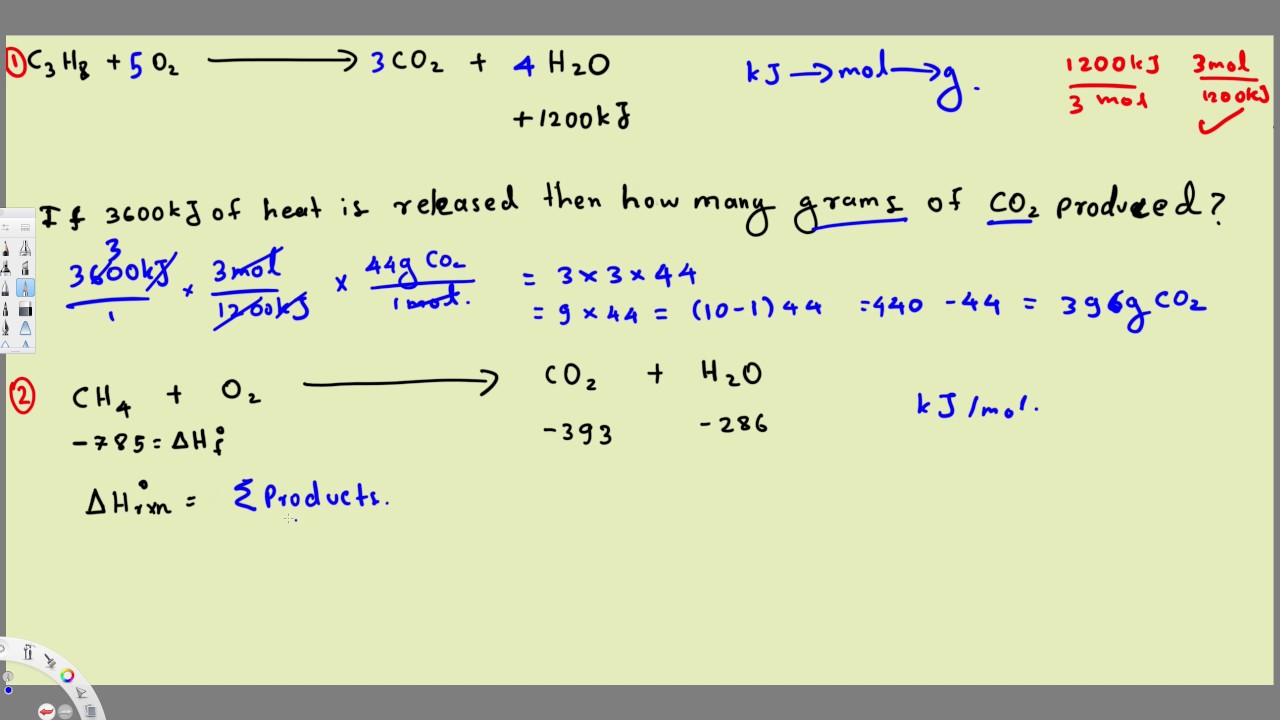 ① C₃H₈ + 5O₂ ⟶ 3CO₂ + 4 H₂O
+1200kJ
kJ → mol → g.
1200kJ / 3 mol
3mol / 1200kJ ✓
If 3600kJ of heat is released then how many grams of CO₂ produced?
3
3600kJ / 1 × 3mol / 1200kJ × 44g CO₂ / 1mol. = 3 × 3 × 44
= 9 × 44 = (10-1) 44 = 440 - 44 = 396g CO₂
② CH₄ + O₂ ⟶ CO₂ + H₂O
-785 = ΔH°f -393 -286
kJ/mol.
ΔH°rxn = Σ Products.